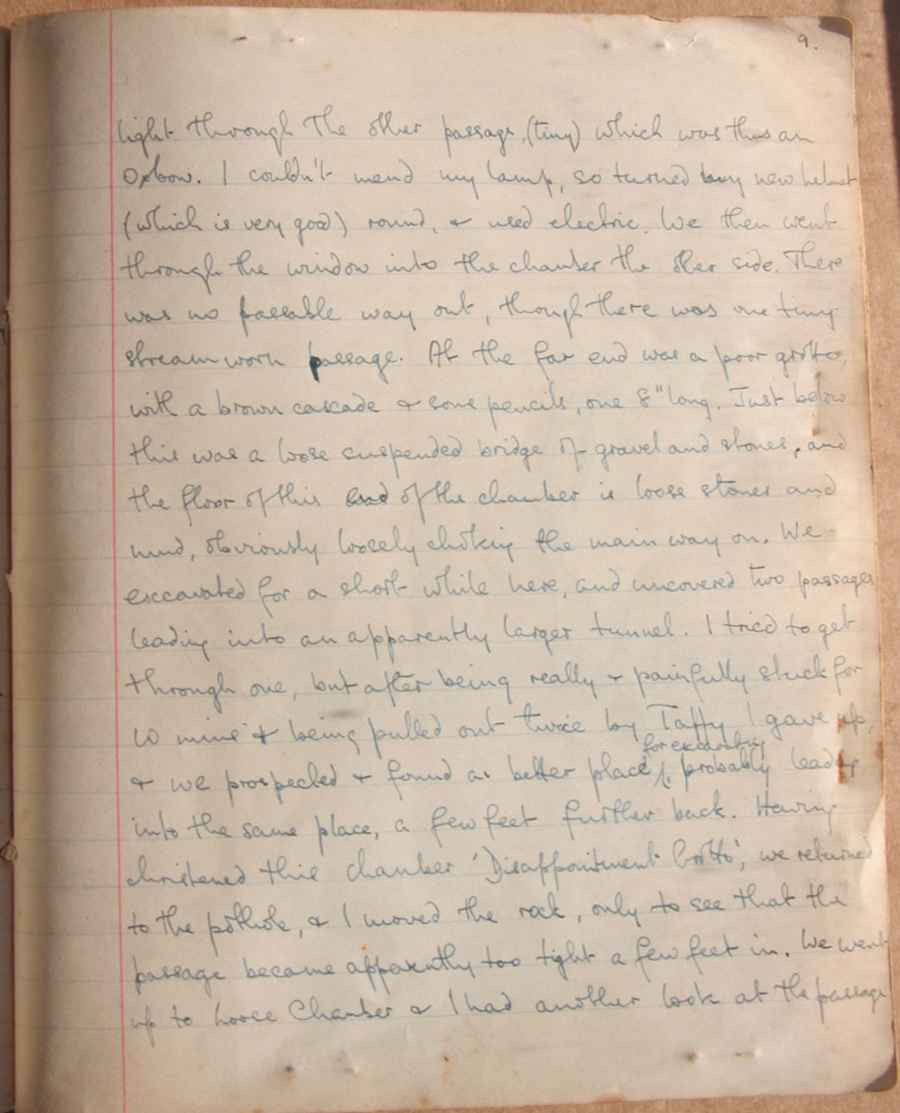 9.
light through the other passage, (tiny) which was thus an
Oxbow. I couldn't mend my lamp, so turned my new helmet
(which is very good) round, & used electric. We then went
through the window into the chamber the other side. There
was no passable way out, though there was one tiny
stream worn passage. At the far end was a poor grotto,
with a brown cascade & some pencils, one 8" long. Just below
this was a loose suspended bridge of gravel and stones, and
the floor of this end of the chamber is loose stones and
mud, obviously loosely choking the main way on. We
excavated for a short while here, and uncovered two passages
leading into an apparently larger tunnel. I tried to get
through one, but after being really & painfully stuck for
10 mins & being pulled out twice by Taffy I gave up,
for excavating
& we prospected & found a better place, probably leading
into the same place, a few feet further back. Having
christened this chamber 'Disappointment Grotto', we returned
to the pothole, & I moved the rock, only to see that the
passage became apparently too tight a few feet in. We went
up to Loose Chamber & I had another look at the passage